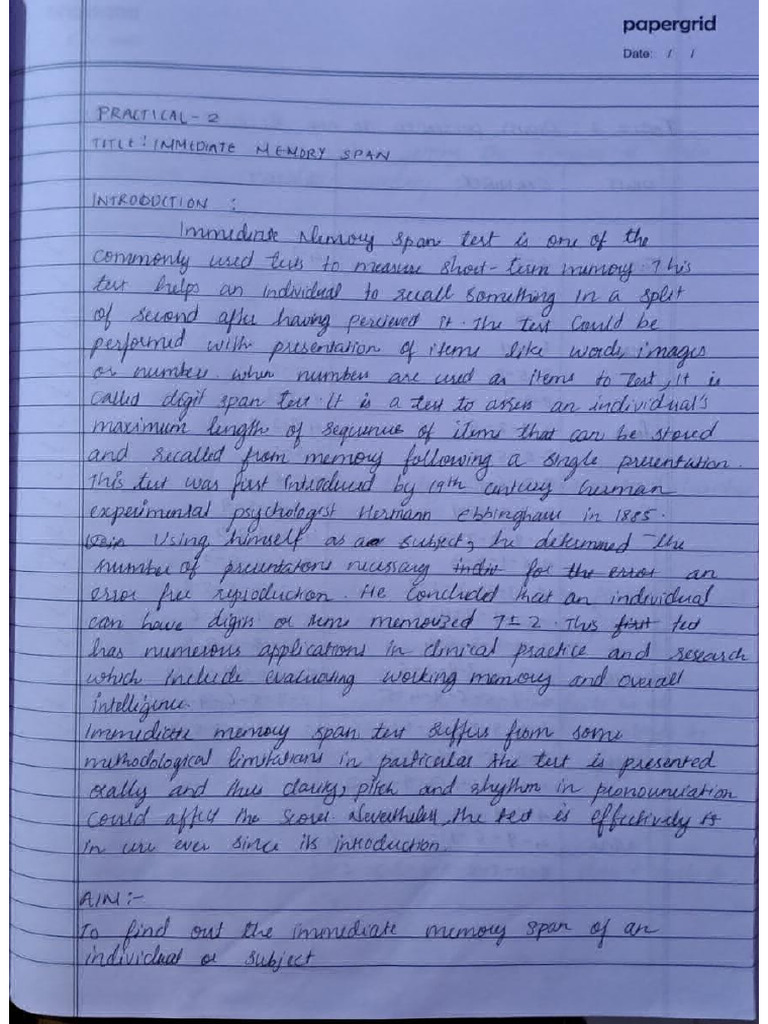 papergrid
Date: / /
PRACTICAL - 2
TITLE : IMMEDIATE MEMORY SPAN
INTRODUCTION :
Immediate Memory span test is one of the
commonly used tests to measure short-term memory. This
test helps an individual to recall something in a split
of second after having percieved it. The test could be
performed with presentation of items like words, images
or numbers. when numbers are used as items to test, it is
called digit span test. It is a test to asses an individual's
maximum length of sequence of items that can be stored
and recalled from memory following a single presentation.
This test was first introduced by 19th century German
experimental psychologist Hermann Ebbinghaus in 1885.
Using himself as a subject, he determined the
number of presentations necessary for the error an
error free reproduction. He concluded that an individual
can have digits or items memorized 7±2. This first test
has numerous applications in clinical practice and research
which include evaluating working memory and overall
intelligence.
Immediate memory span test suffers from some
methodological limitations in particular the test is presented
orally and thus clarity, pitch and rhythm in pronounciation
could affect the score. Nevertheless, the test is effectively
in use ever since its introduction.
AIM :-
To find out the immediate memory span of an
individual or subject